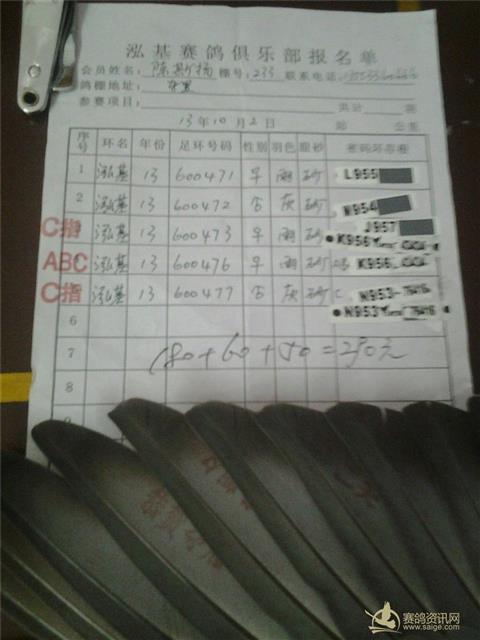 泓基赛鸽俱乐部报名单
会员姓名: 陈斯扬 棚号: 233 联系电话
鸽棚地址:
参赛项目: 共计 羽
13年10月2日 站 公里
序号 环名 年份 足环号码 性别 羽色 眼砂 密码环存根
1 泓基 13 600471 早 雨 砂 L955
2 泓基 13 600472 否 灰 砂 N954
C指 泓基 13 600473 早 雨 砂 J957
K956
ABC 泓基 13 600476 早 雨 砂 K956
C指 泓基 13 600477 否 灰 砂 C N953-7616
N953 7616
6
7 180+60+50=290元
8
赛鸽资讯网
www.saige.com